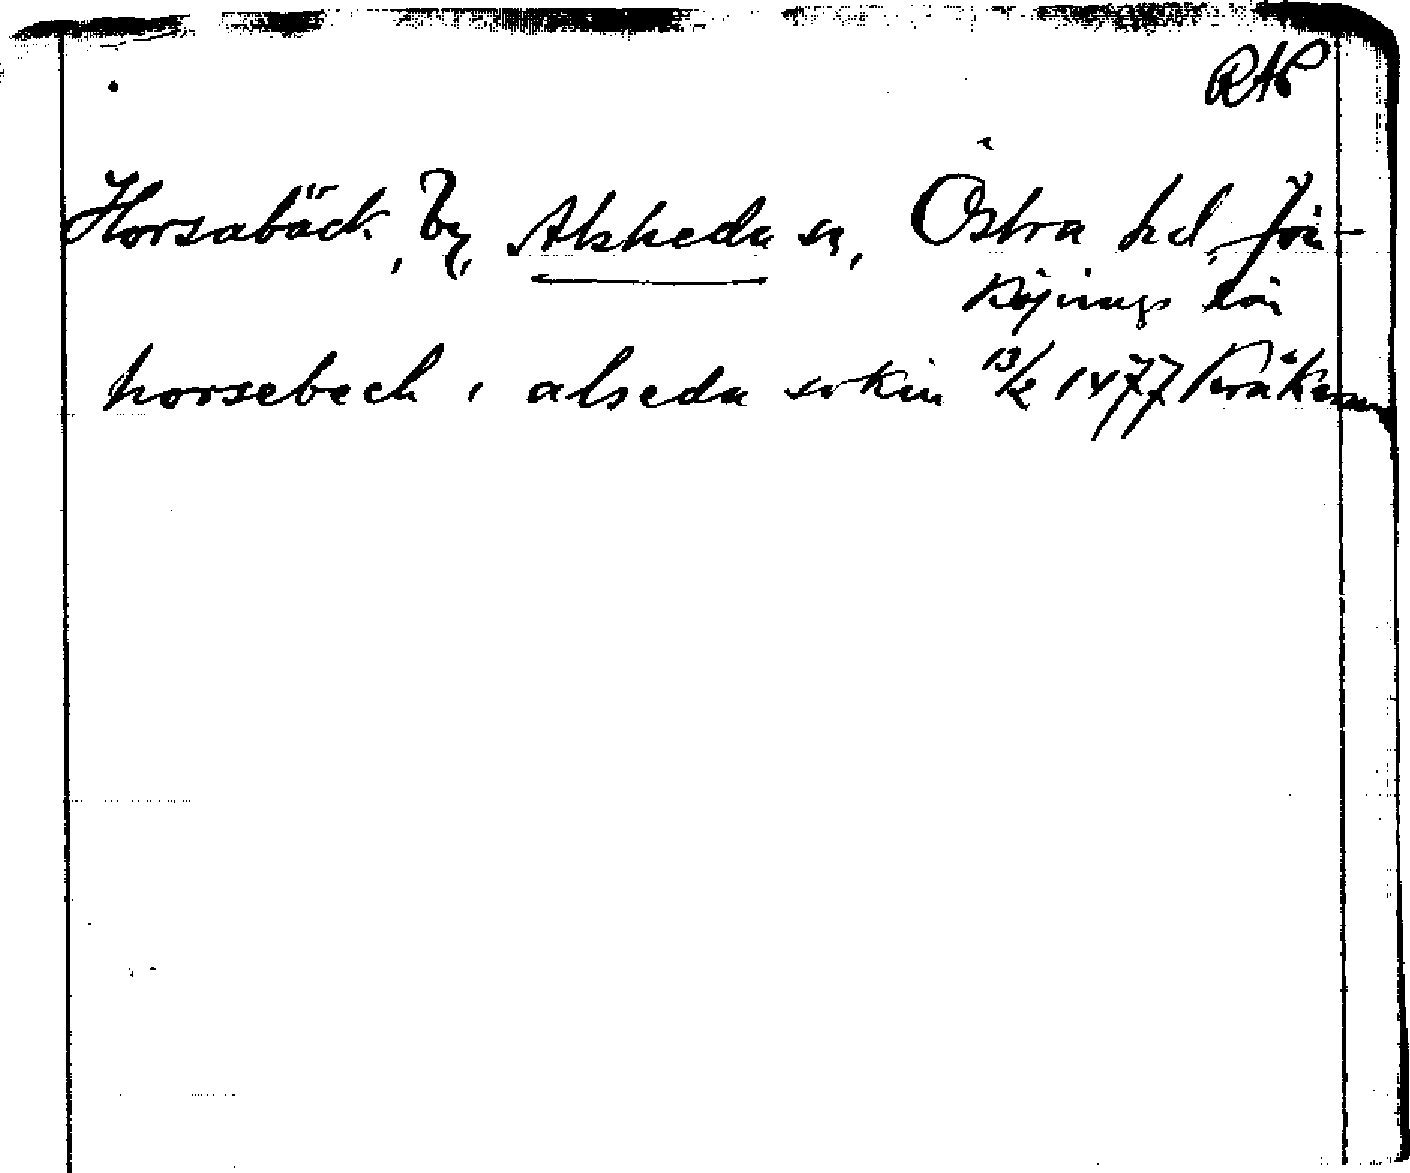 RAP
Horsabäck, by, Alsheda sn, Östra hd, Jön-
köpings län
horsebeck i alseda sokin 13/2 1477 Kråkerum